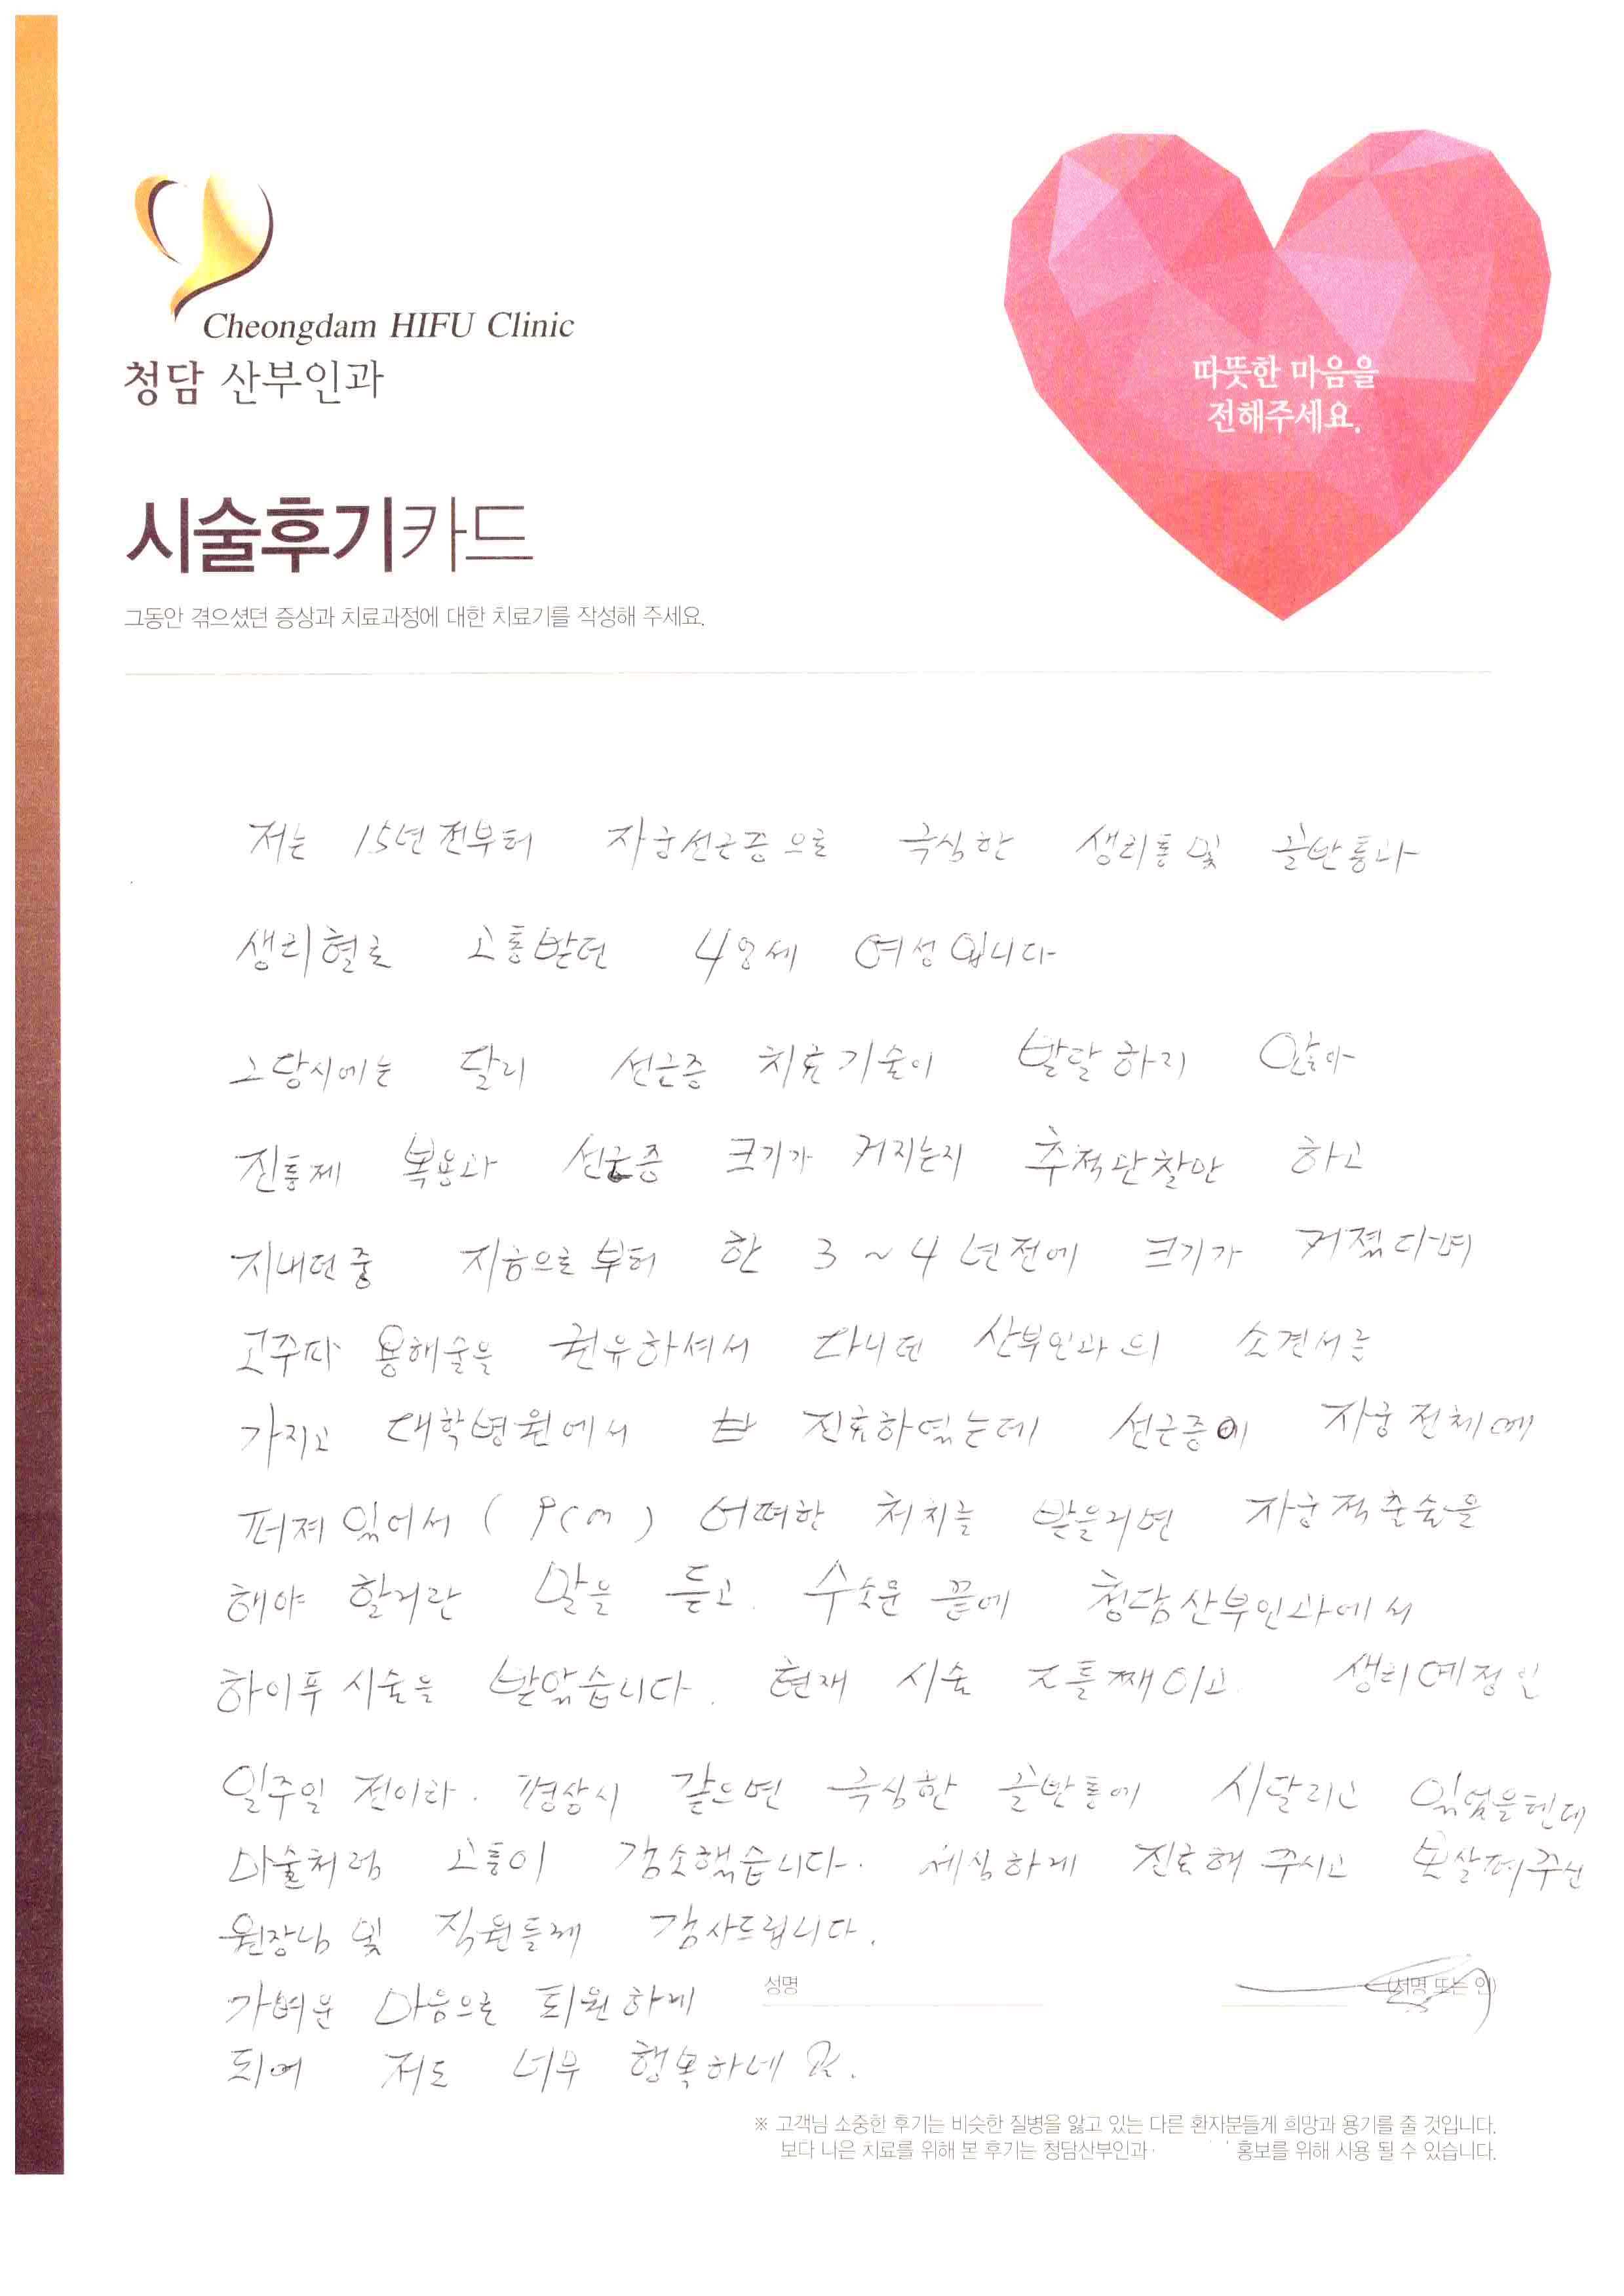 Cheongdam HIFU Clinic
청담 산부인과
따뜻한 마음을
전해주세요.
시술후기카드
그동안 겪으셨던 증상과 치료과정에 대한 치료기를 작성해 주세요.
저는 15년 전부터 자궁선근증으로 극심한 생리통 및 골반통과
생리혈로 고통받던 48세 여성입니다
그당시에는 달리 선근증 치료기술이 발달하지 않아
진통제 복용과 선근증 크기가 커지는지 추적관찰만 하고
지내던 중 지금으로부터 한 3~4년전에 크기가 커졌다며
고주파 용해술을 권유하셔서 다니던 산부인과의 소견서를
가지고 대학병원에서 진료하였는데 선근증이 자궁전체에
퍼져있어서 (9cm) 어떠한 처치를 받을려면 자궁적출술을
해야 할거란 말을 듣고. 수소문 끝에 청담산부인과에서
하이푸시술을 받았습니다. 현재 시술 이틀째이고 생리예정인
일주일 전이라. 평상시 같으면 극심한 골반통에 시달리고 있었을텐데
마술처럼 고통이 감소했습니다. 세심하게 진료해 주시고 보살펴주신
원장님 및 직원들께 감사드립니다.
가벼운 마음으로 퇴원하게
성명 (서명 또는 인)
되어 저도 너무 행복하네요.
※ 고객님 소중한 후기는 비슷한 질병을 앓고 있는 다른 환자분들게 희망과 용기를 줄 것입니다.
보다 나은 치료를 위해 본 후기는 청담산부인과 홍보를 위해 사용 될 수 있습니다.